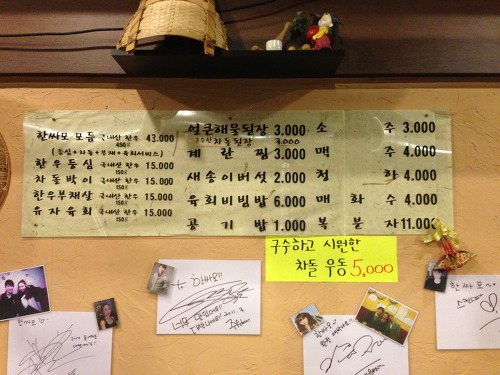 한싸모 모듬 국내산 한우 43,000
450g
(등심+차돌+부채+육회서비스)
한우등심 국내산 한우 15,000
150g
차돌박이 국내산 한우 15,000
150g
한우부채살 국내산 한우 15,000
150g
유자육회 국내산 한우 15,000
150g
얼큰해물된장 3.000
구수한 차돌된장 3.000
계란찜 3.000
새송이버섯 2.000
육회비빔밥 6.000
공기밥 1.000
소주 3.000
맥주 4.000
청하 4.000
매화수 4.000
복분자 11.000
구수하고 시원한
차돌 우동 5,000
한싸모